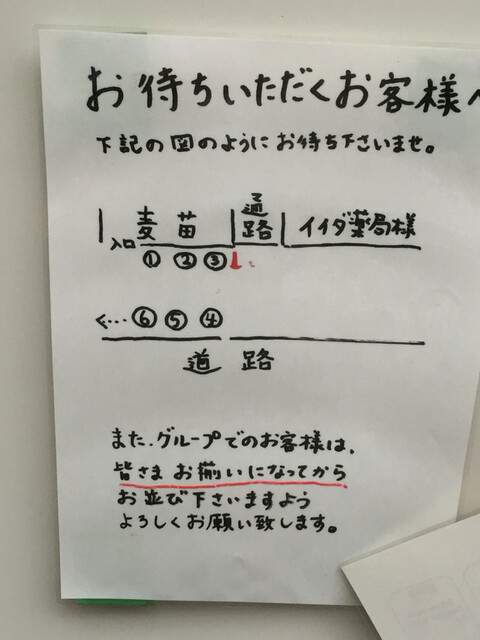 お待ちいただくお客様へ
下記の図のようにお待ち下さいませ。
入口 麦苗 通路 イイダ薬局様
① ② ③
<‥‥ ⑥ ⑤ ④
道路
また、グループでのお客様は、
皆さま お揃いになってから
お並び下さいますよう
よろしくお願い致します。